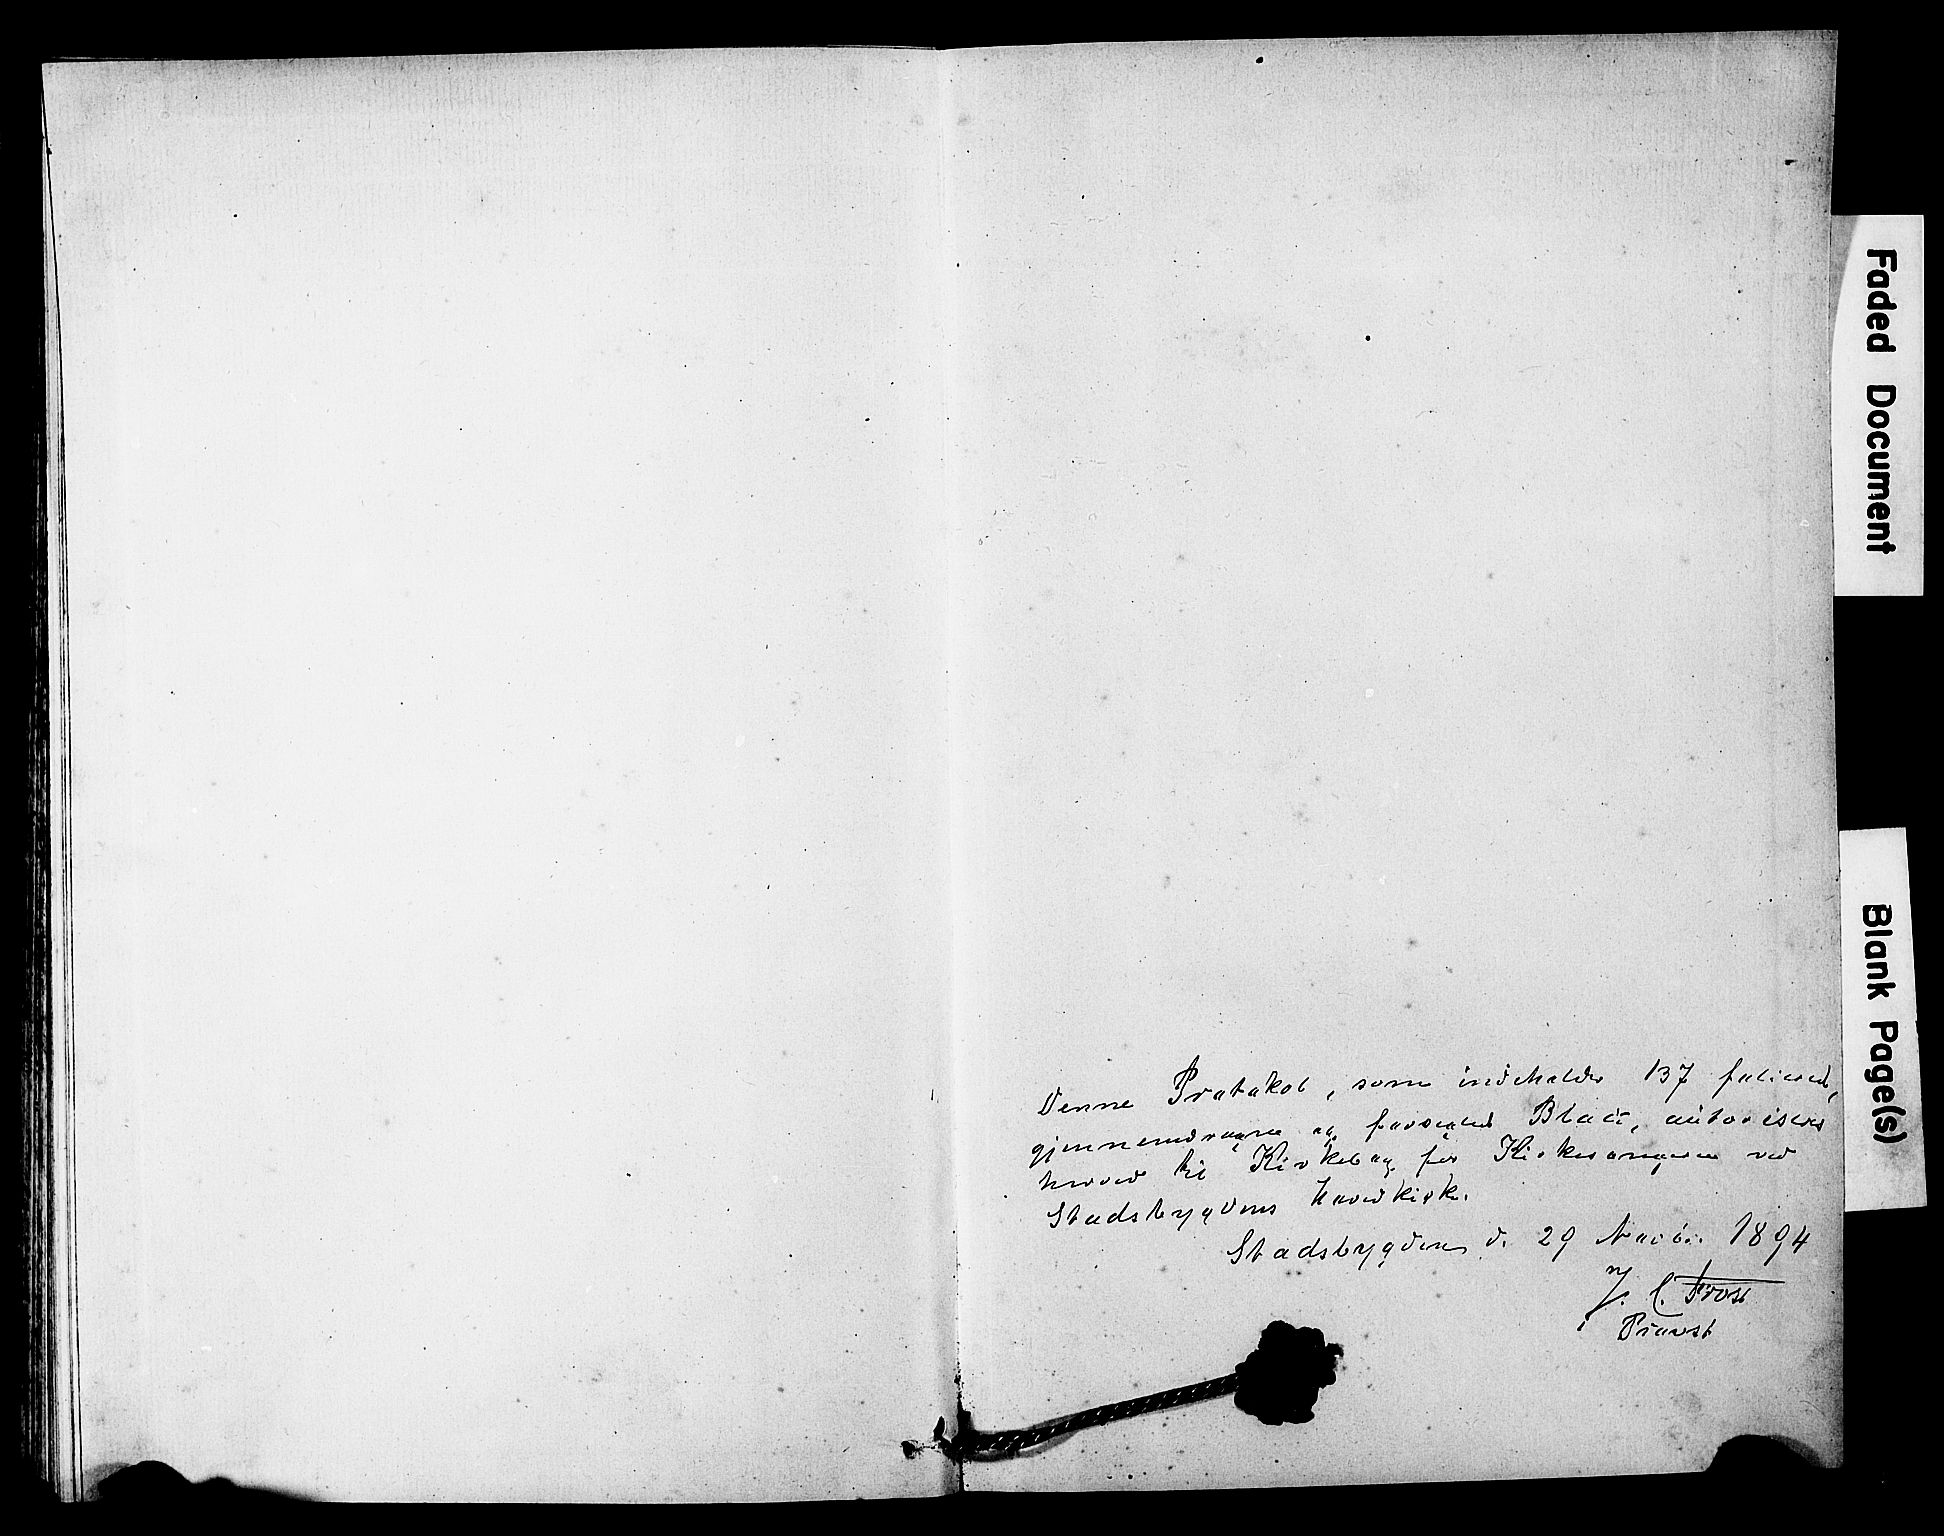 Denne Protokol, som indeholder 137 folierede,
gjennemdragne og forseglede Blade, autoriseres
herved til Kirkebog for Kirkesangeren ved
Stadsbygdens Hovedkirke.
Stadsbygden d. 29 Novbr. 1894
J. C. Frost
Provst
Faded Document
Blank Page(s)